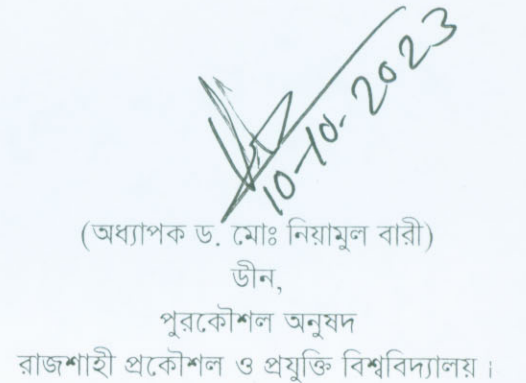 10-10-2023
(অধ্যাপক ড. মোঃ নিয়ামুল বারী)
ডীন,
পুরকৌশল অনুষদ
রাজশাহী প্রকৌশল ও প্রযুক্তি বিশ্ববিদ্যালয়।